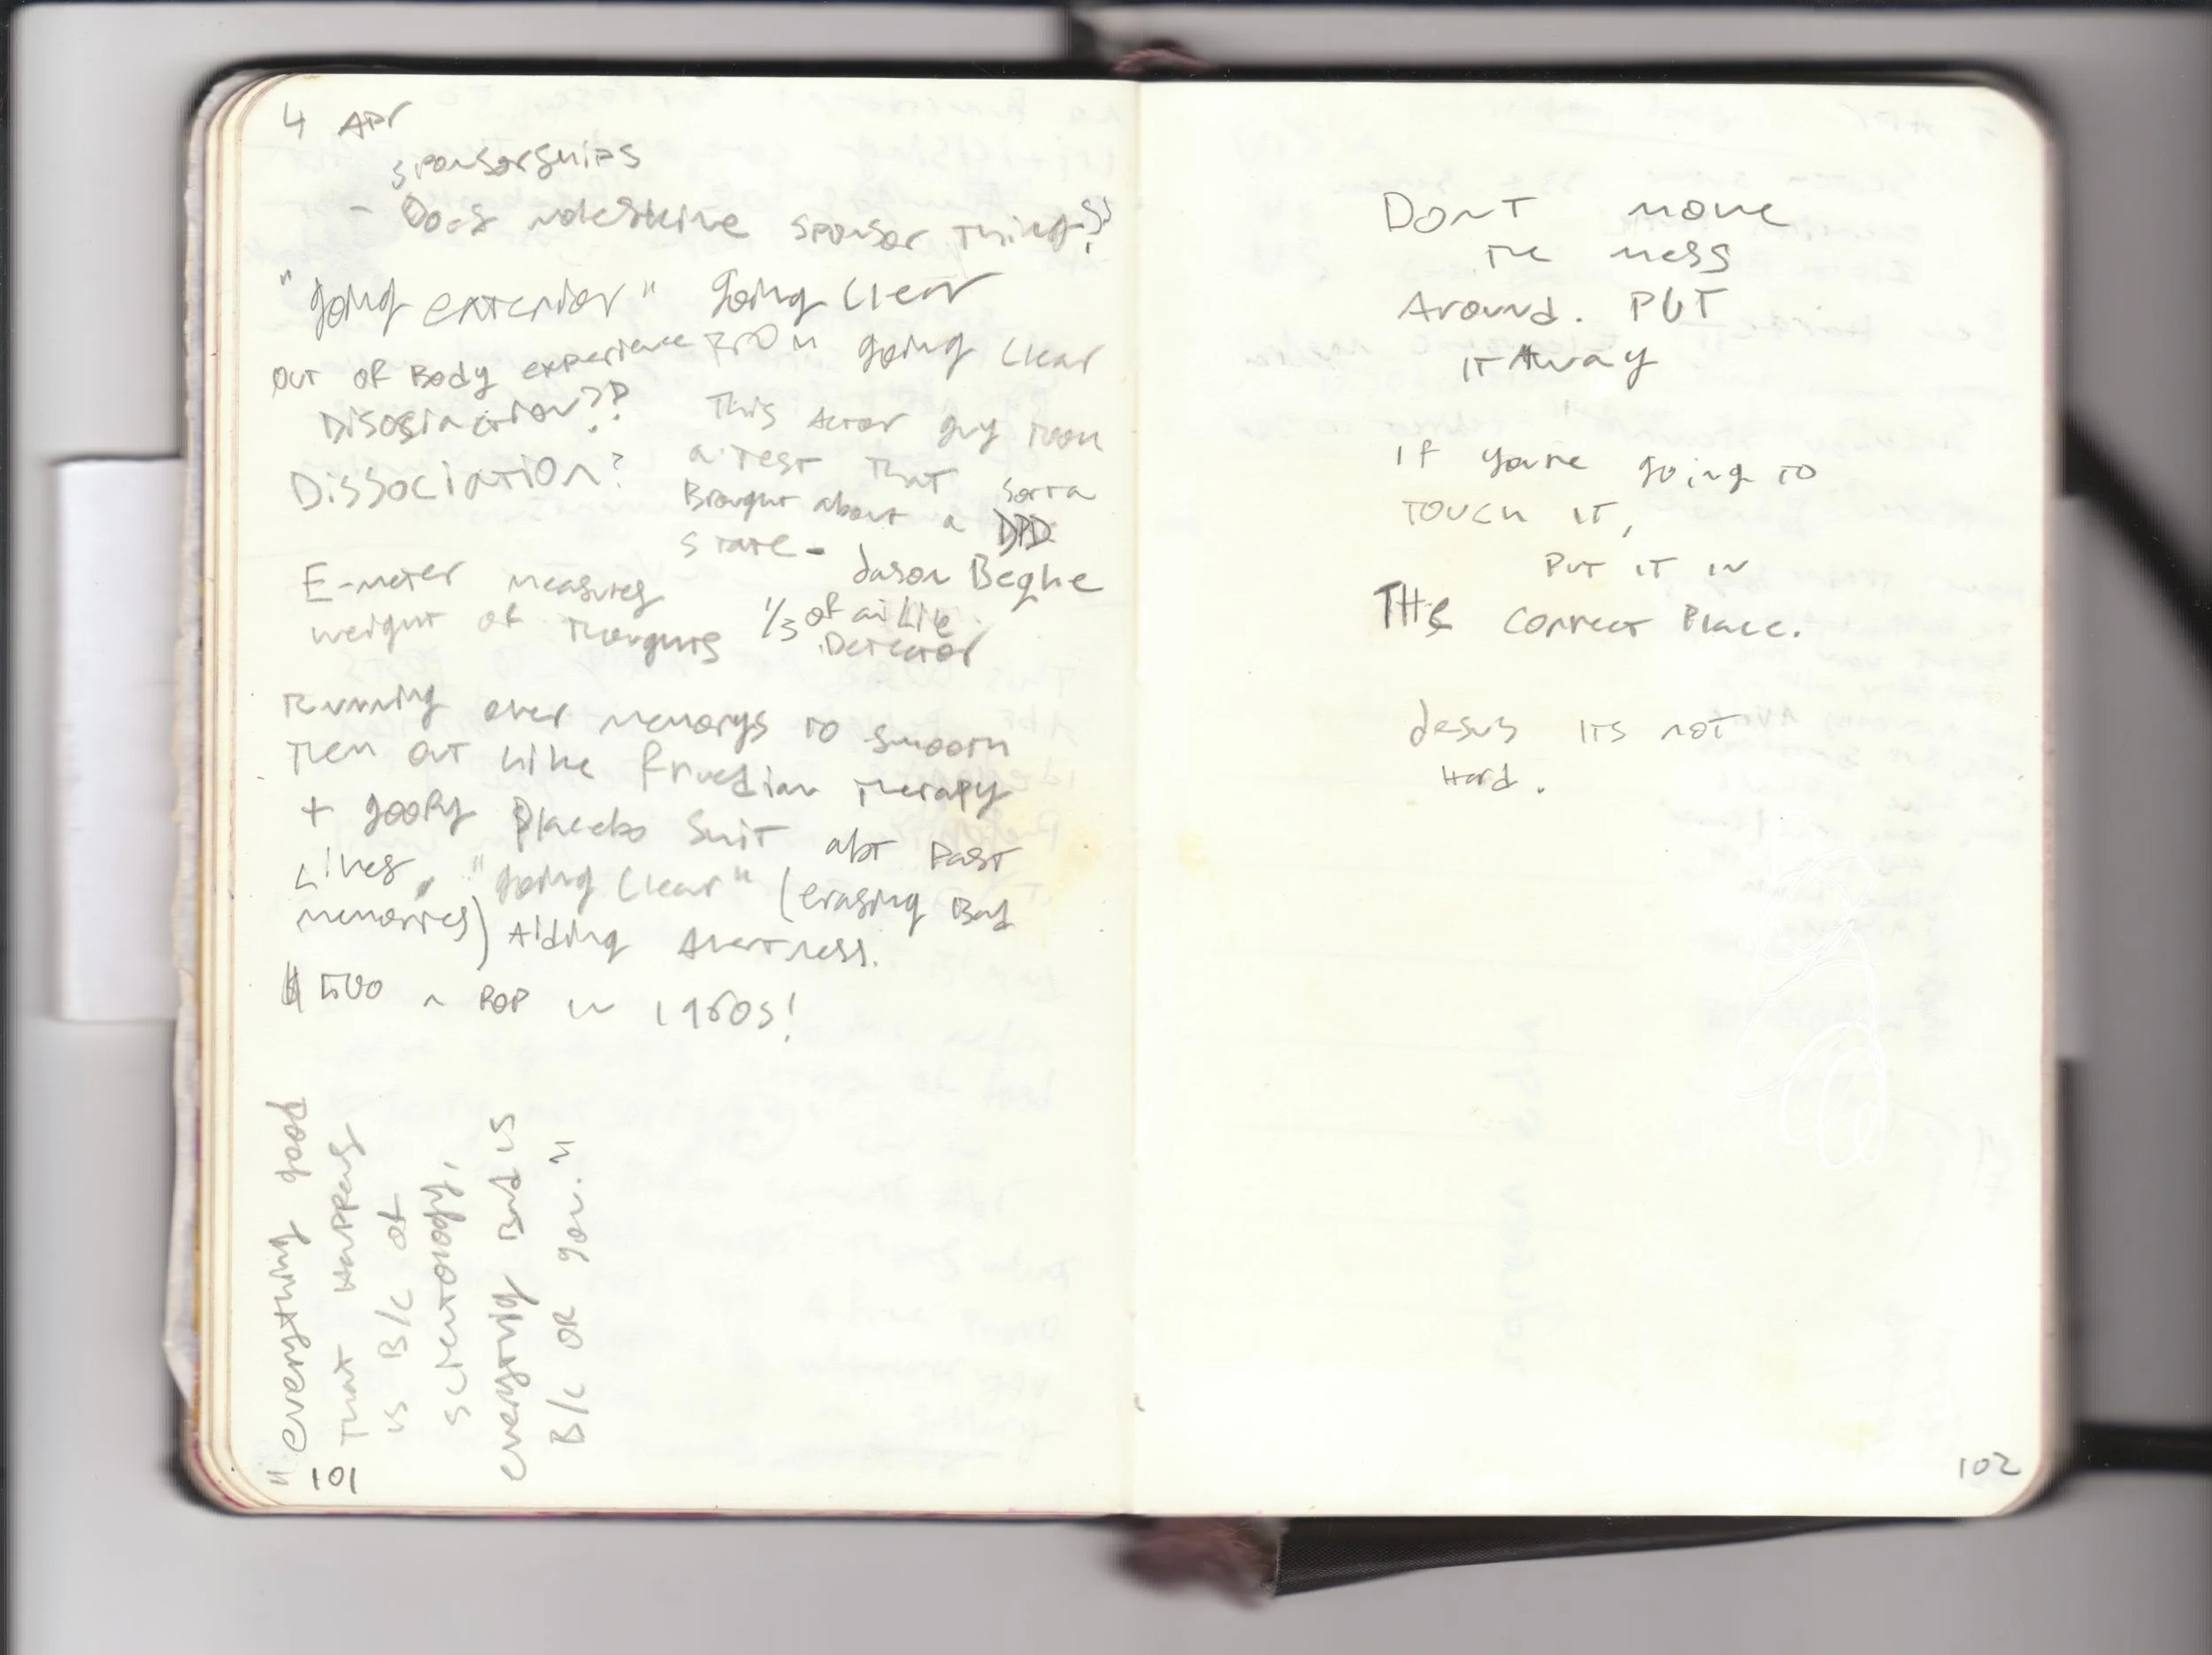 4 Apr
sponsorships
- Does moleskine sponsor things??
"going exterior" going clear
out of Body experience
Disosiaction??
Dissociation?
From going clear
This Actor guy took
a test that sorta
Brought about a DPD
state - Jason Beghe
E-meter measures
weight of thoughts
1/3 of a lie
Detector
running over memorys to smooth
them out like fruedian therapy
+ goofy placebo shit abt past
Lives. "going clear" (erasing Bad
memories) Aiding Alertness.
$500 a pop in 1960s!
"everything good
that happens
is B/c of
scientology,
everything bad is
B/c OF you."
101
Don't move
the mess
Around. PUT
it Away
If you're going to
touch it,
put it in
THE correct place.
Jesus its not
Hard.
102